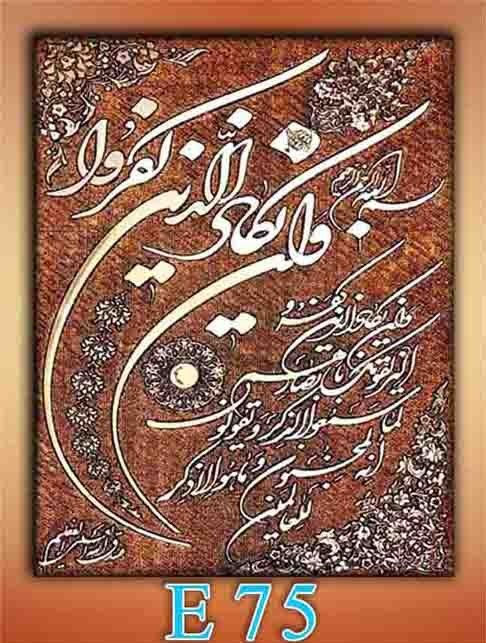 وان یکاد الذین کفروا
بسم الله الرحمن الرحیم
وان یکاد الذین کفروا
لیزلقونک بابصارهم
لما سمعوا الذکر و یقولون
انه لمجنون و ما هو الا ذکر
للعالمین
E 75